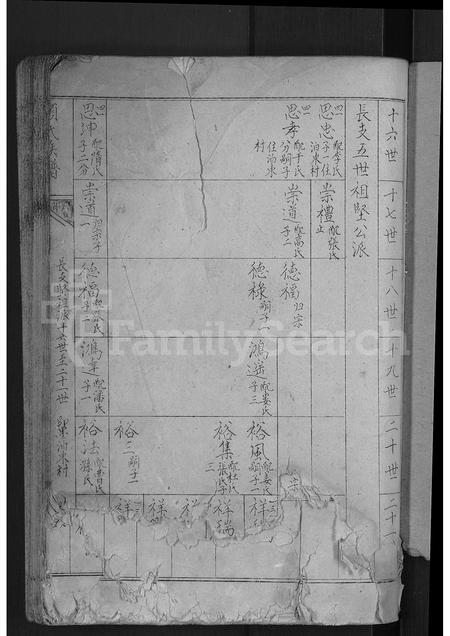 十六世
十七世
十八世
十九世
二十世
二十一
長支五世祖堅公派
四
思忠
配李氏
子一住
泊東村
崇禮
配張氏
止
四
思孝
配于氏
分嗣子
住泊東
村
崇道
配高氏
子二
德福
归宗
德祿
嗣子一
鴻遥
配姜氏
子三
裕風
配姜氏
嗣子一
裕集
配杜氏
張氏子
三
祥
祥瑞
祥
祥
祥
裕
三嗣子一
四
思沖
配隋氏
子二分
崇道
嗣子
一
德福
氏
子二
鴻
配潘氏
子一
裕法
配曹氏
孫氏
族譜
長支堅祖派十六世至二十一世
泊東村
FamilySearch